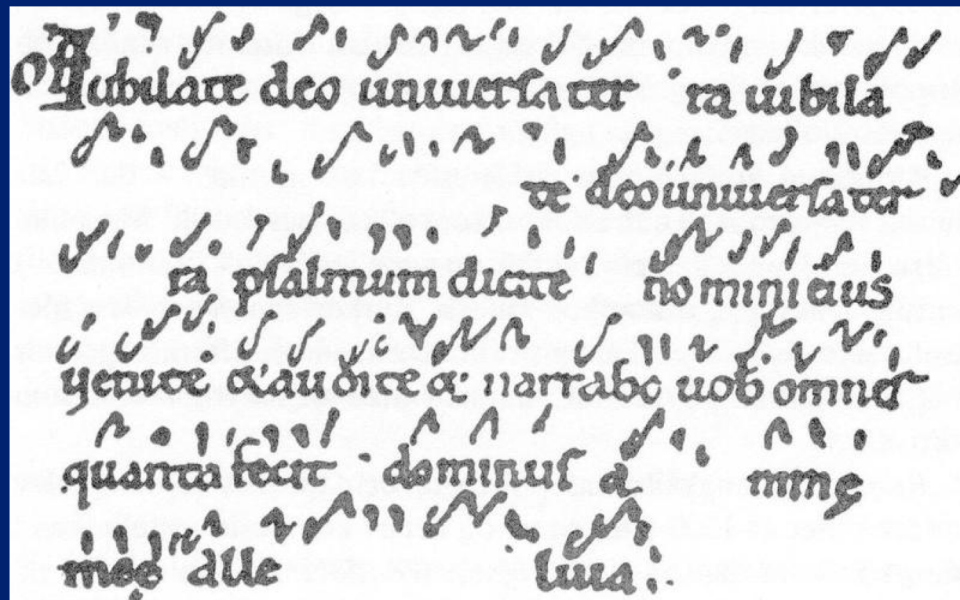 Iubilate deo uniuersa ter ra iubila
te deo uniuersa ter
ra psalmum dicite nomini eius
uenite &audite &narrabo uob omnes
quanta fecit dominus a nime
meę alle luia.